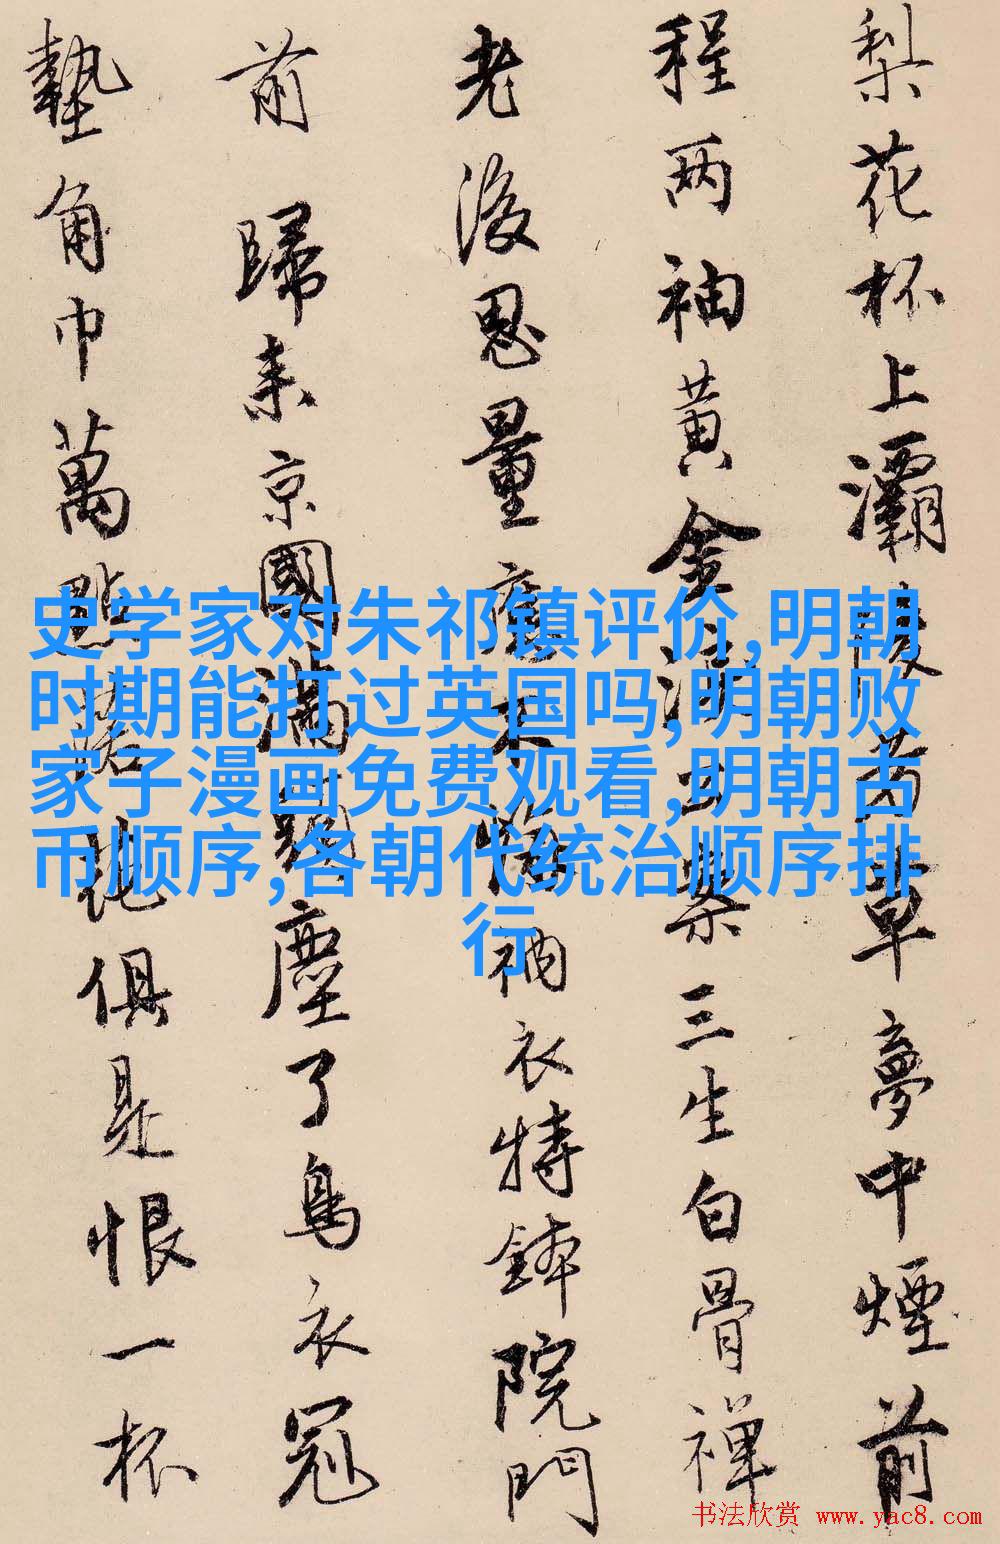 梨花杯上灞陵芳草夢中煙前
程两袖黄金淚公案三生白骨禪
老後思量應不悔衲衣持鉢院門
前歸来京國滿塵了烏衣冠
墊角巾萬點落花俱是恨一杯
史学家对朱祁镇评价,明朝
时期能打过英国吗,明朝败
家子漫画免费观看,明朝古
币顺序,各朝代统治顺序排
行
书法欣赏 www.yac8.com